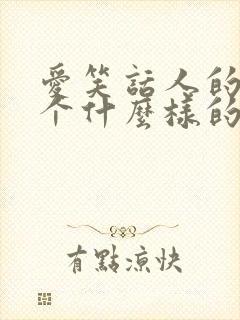 愛笑話人的
个什麼樣的
有點涼快